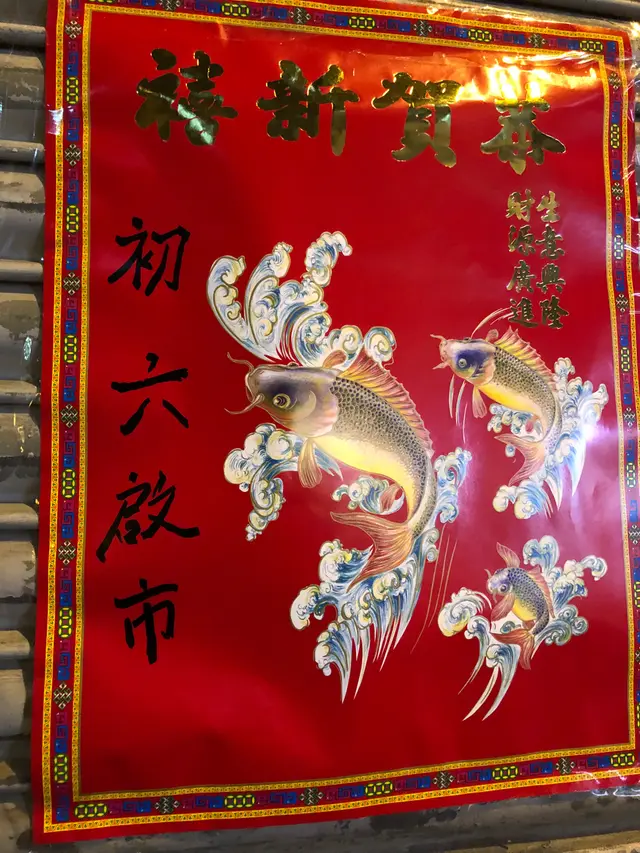 恭賀新禧
生意興隆
財源廣進
初六啟市